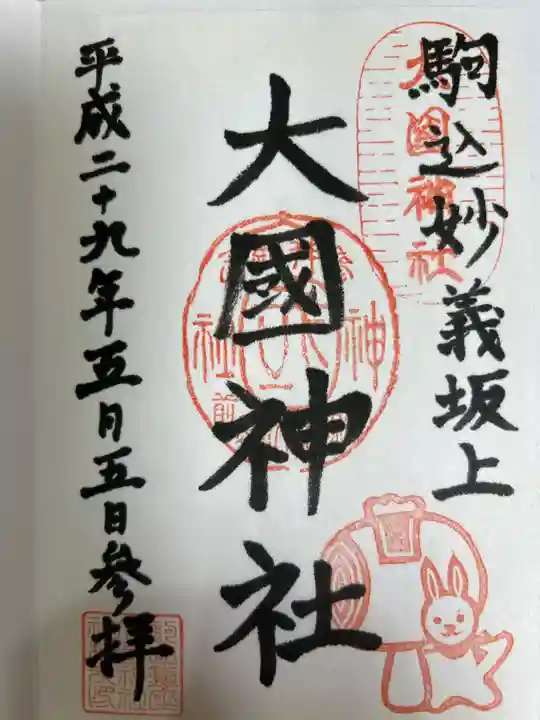 駒込妙義坂上
大國神社
大國神社
平成二十九年五月五日參拝